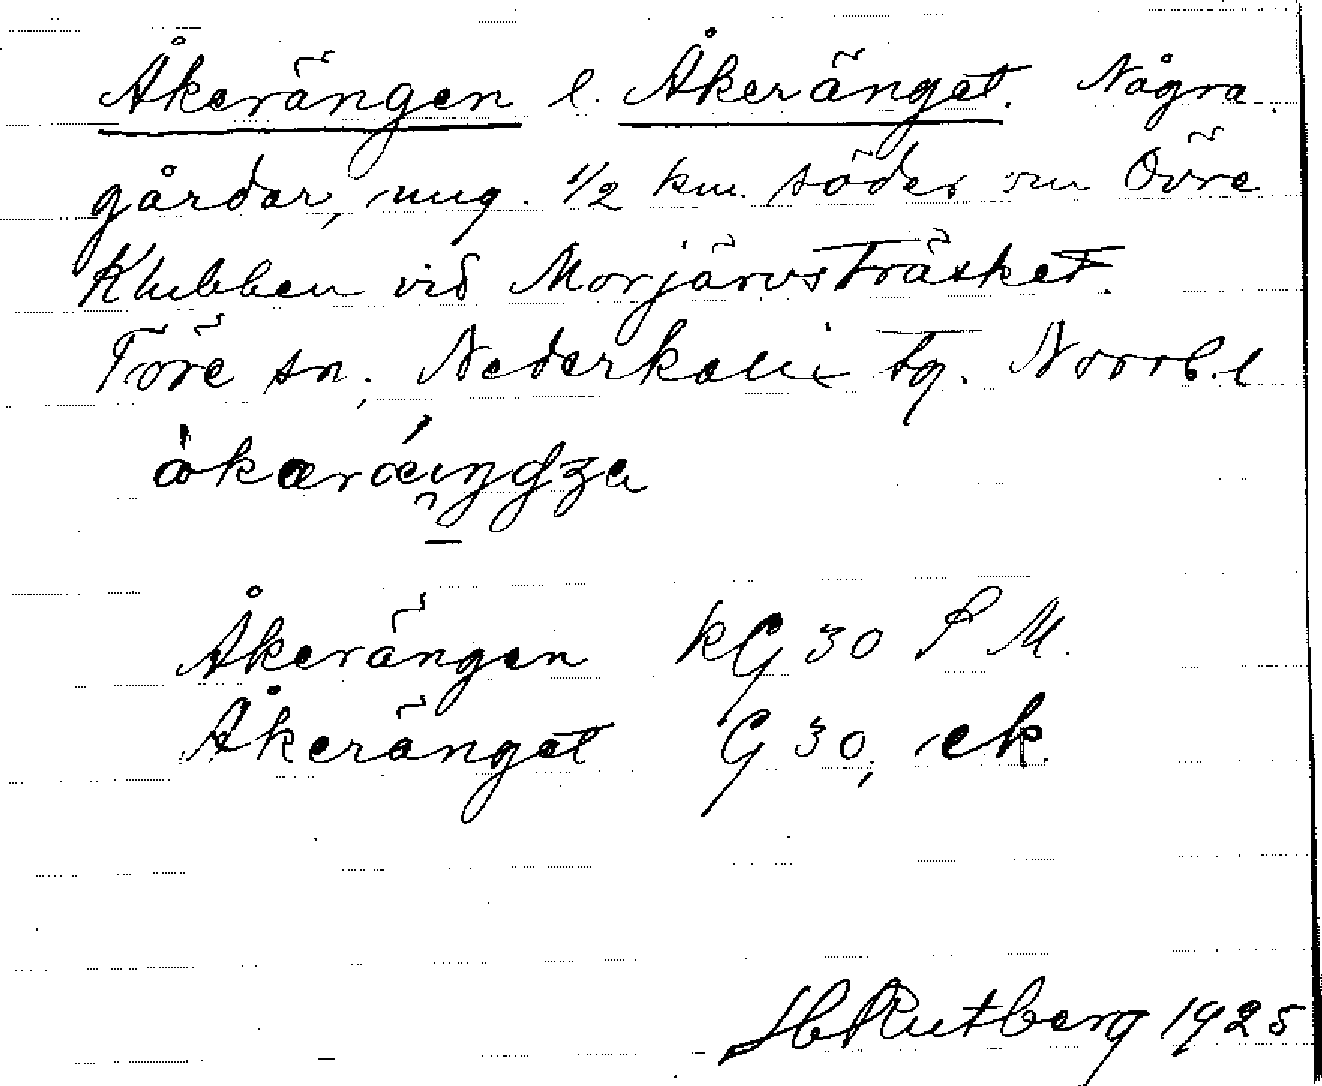 Åkerängen l. Åkeränget. Några
gårdar, ung. 1/2 km. söder om Övre
Klubben vid Morjärvsträsket.
Töre sn, Nederkalix tg. Norrb. l
Åkerängen kG 30 P M.
Åkeränget G 30, ek.
H Rutberg 1925